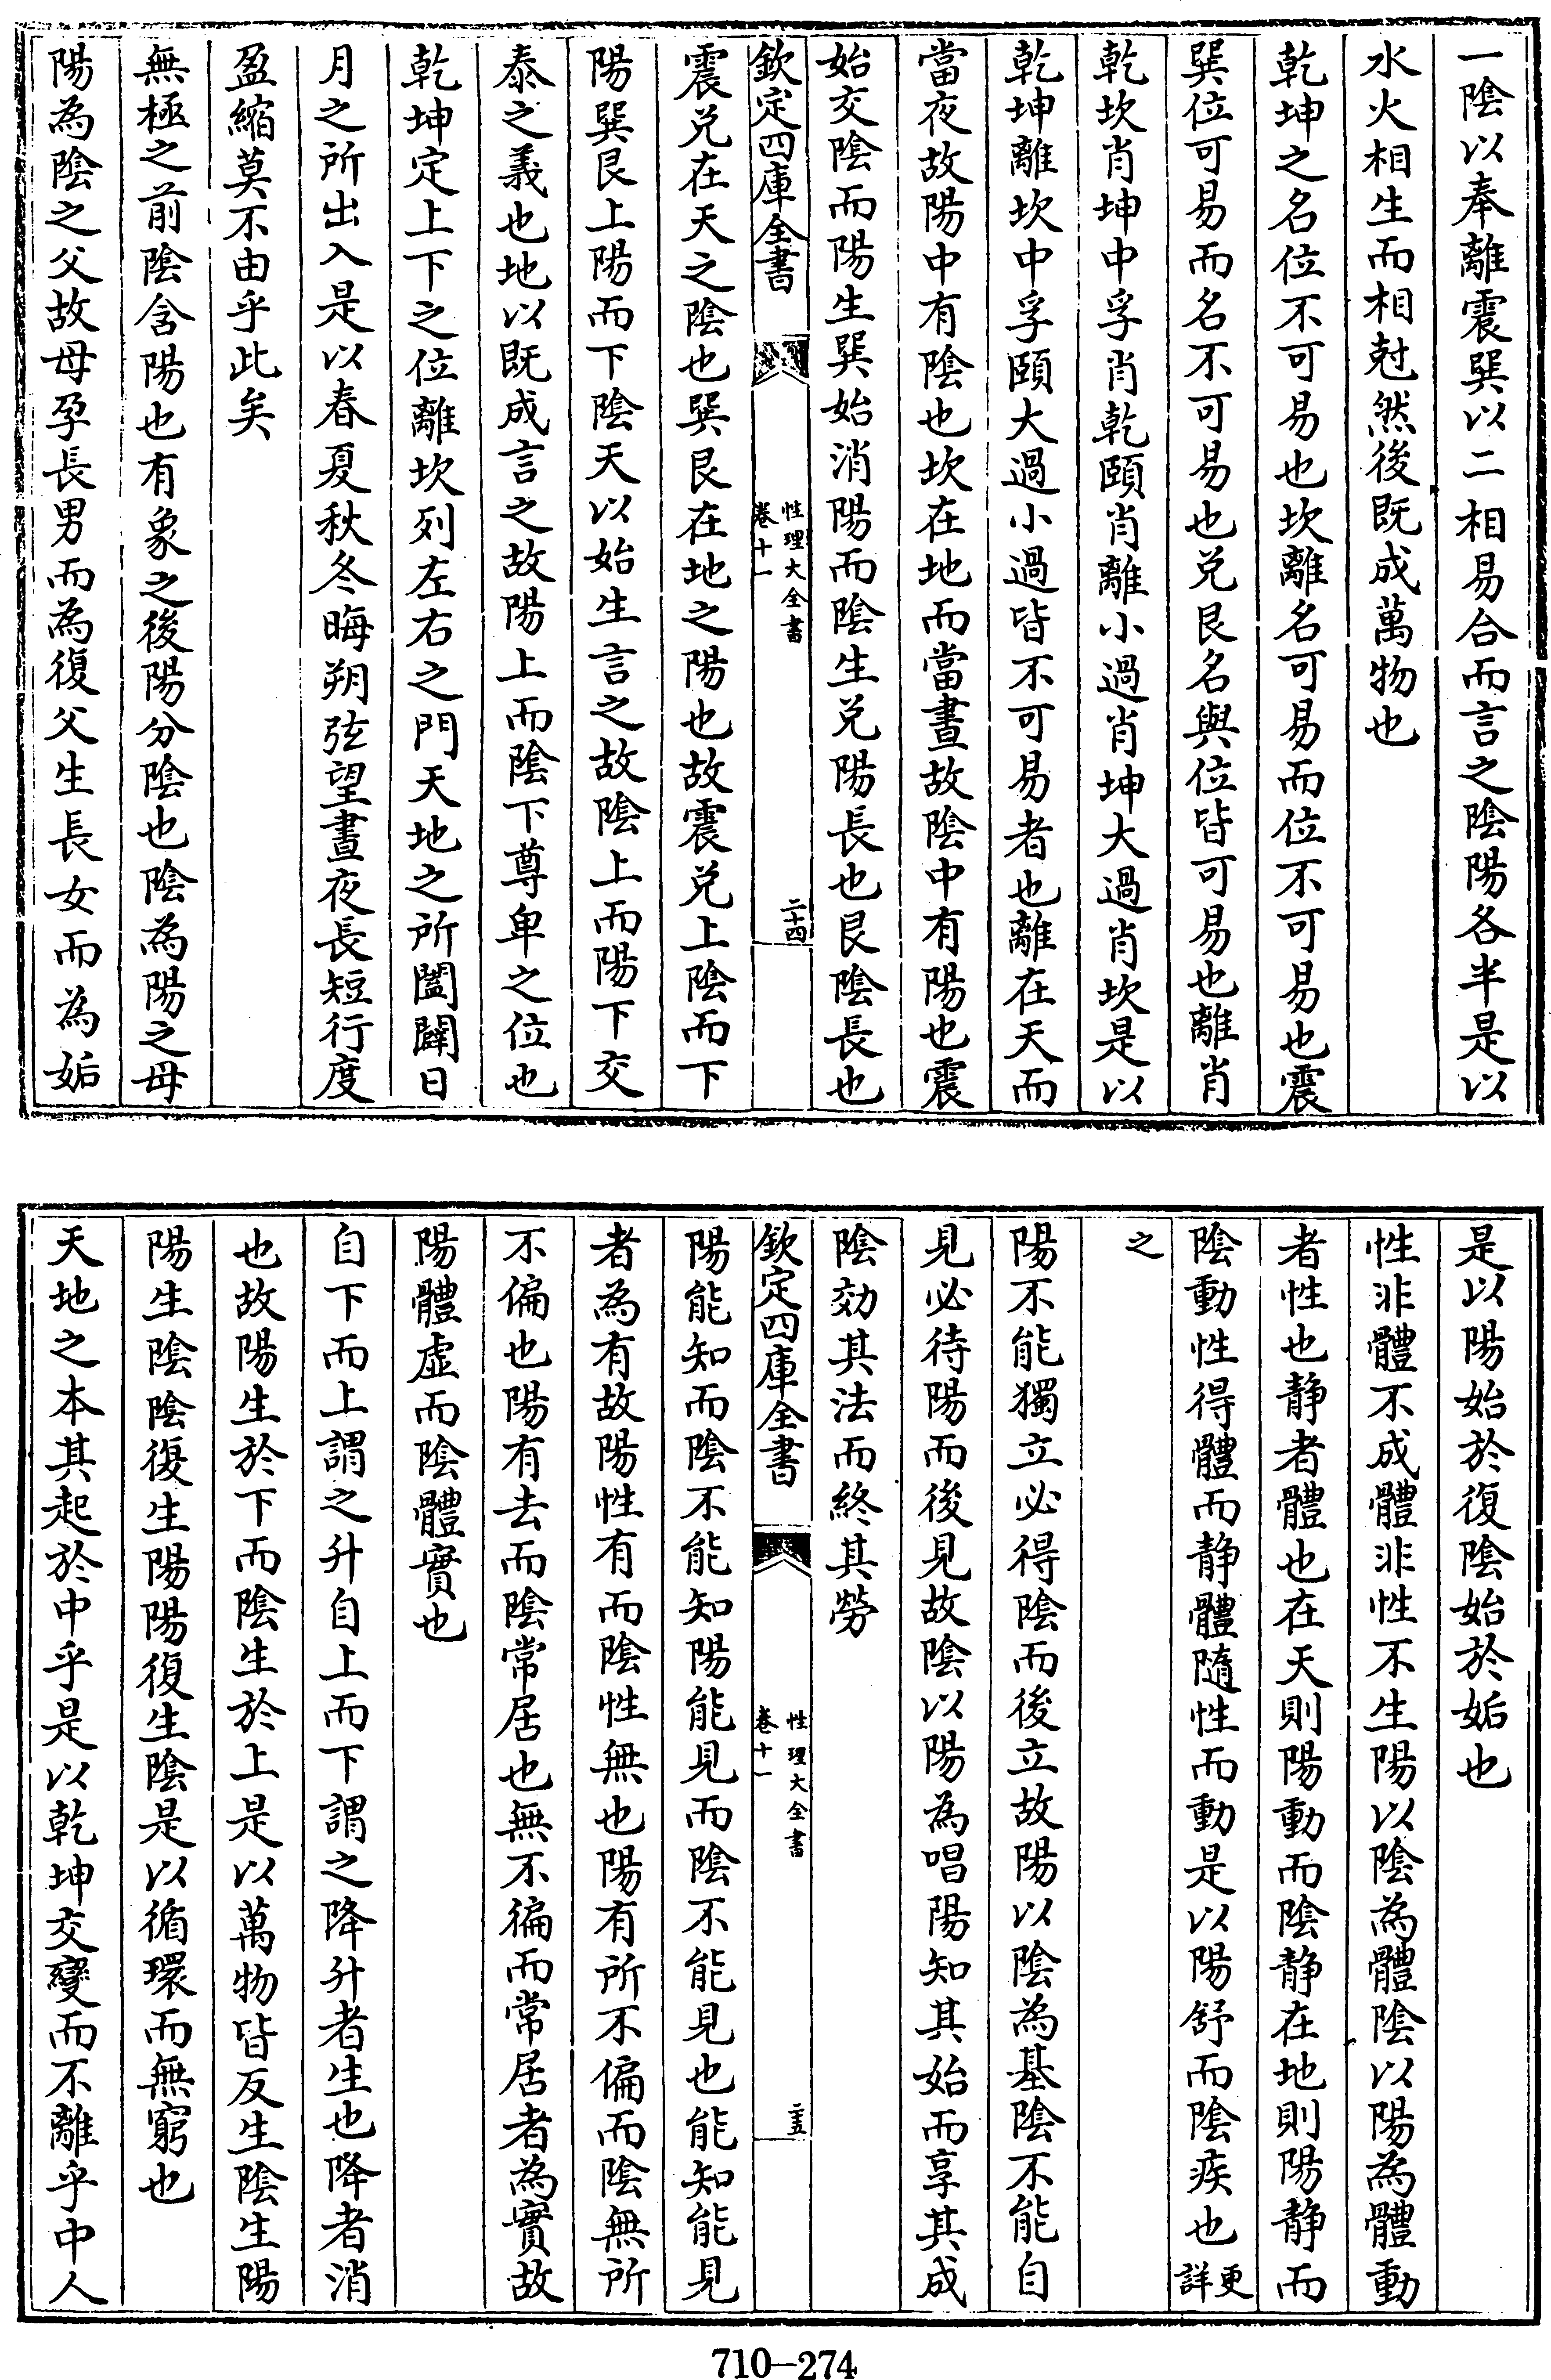 一陰以奉離震巽以二相易合而言之陰陽各半是以
水火相生而相尅然後既成萬物也
乾坤之名位不可易也坎離名可易而位不可易也震
巽位可易而名不可易也兑艮名與位皆可易也離肖
乾坎肖坤中孚肖乾頤肖離小過肖坤大過肖坎是以
乾坤離坎中孚頤大過小過皆不可易者也離在天而
當夜故陽中有陰也坎在地而當晝故陰中有陽也震
始交陰而陽生巽始消陽而陰生兑陽長也艮陰長也
欽定四庫全書
性理大全書
卷十一
二十四
震兑在天之陰也巽艮在地之陽也故震兑上陰而下
陽巽艮上陽而下陰天以始生言之故陰上而陽下交
泰之義也地以既成言之故陽上而陰下尊卑之位也
乾坤定上下之位離坎列左右之門天地之所闔闢日
月之所出入是以春夏秋冬晦朔弦望晝夜長短行度
盈縮莫不由乎此矣
無極之前陰含陽也有象之後陽分陰也陰為陽之母
陽為陰之父故母孕長男而為復父生長女而為姤
是以陽始於復陰始於姤也
性非體不成體非性不生陽以陰為體陰以陽為體動
者性也静者體也在天則陽動而陰静在地則陽静而
陰動性得體而静體隨性而動是以陽舒而陰疾也更詳
之
陽不能獨立必得陰而後立故陽以陰為基陰不能自
見必待陽而後見故陰以陽為唱陽知其始而享其成
陰効其法而終其勞
欽定四庫全書
性理大全書
卷十一
二五
陽能知而陰不能知陽能見而陰不能見也能知能見
者為有故陽性有而陰性無也陽有所不偏而陰無所
不偏也陽有去而陰常居也無不徧而常居者為實故
陽體虚而陰體實也
自下而上謂之升自上而下謂之降升者生也降者消
也故陽生於下而陰生於上是以萬物皆反生陰生陽
陽生陰陰復生陽陽復生陰是以循環而無窮也
天地之本其起於中乎是以乾坤交變而不離乎中人
710—274